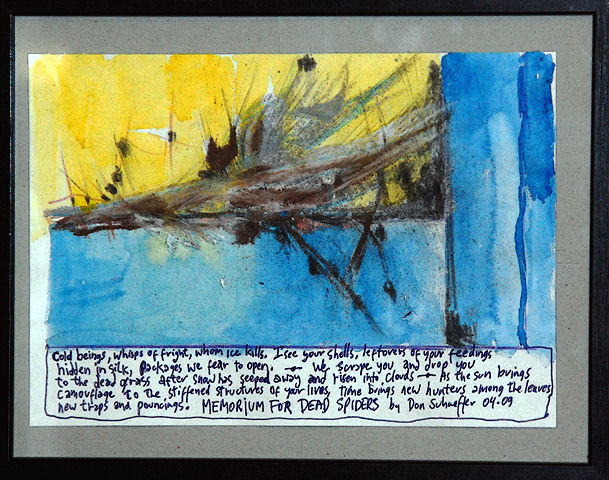 Cold beings, whisps of fright, whom ice kills. I see your shells, leftovers of your feedings
hidden in silk, packages we fear to open. — We scrape you and drop you
to the dead grass after snow has seeped away and risen into clouds — As the sun brings
camouflage to the stiffened structures of your lives, time brings new hunters among the leaves,
new traps and pouncings. MEMORIUM FOR DEAD SPIDERS by Don Schaeffer 04.09